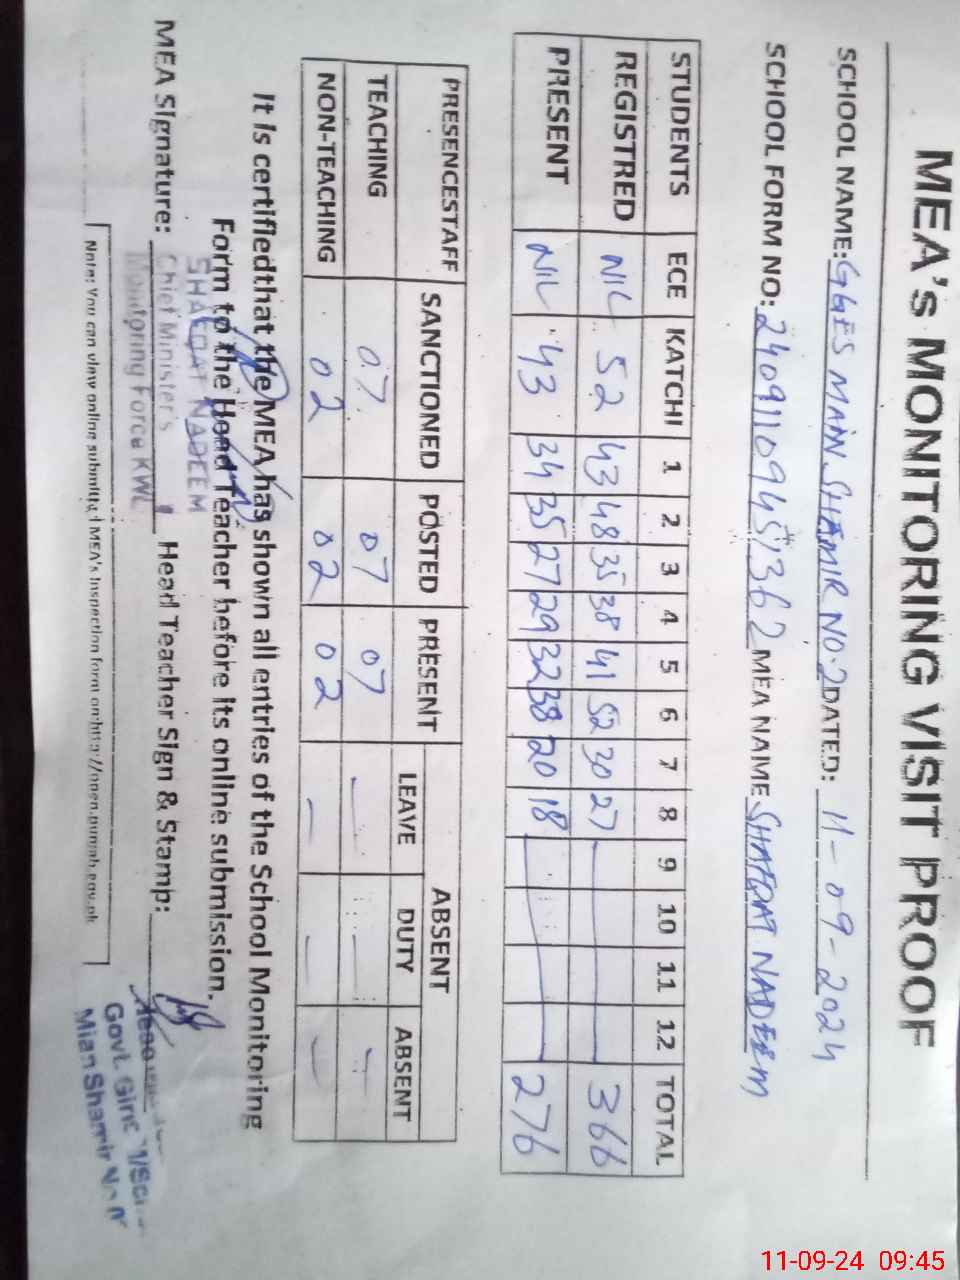 MEA's MONITORING VISIT PROOF
SCHOOL NAME: GGES MAIN SHAMIR NO.2 DATED: 11-09-2024
SCHOOL FORM NO: 24091109451362 MEA NAME SHAFQAT NADEEM
STUDENTS ECE KATCHI 1 2 3 4 5 6 7 8 9 10 11 12 TOTAL
REGISTRED NIL 52 43 48 35 38 41 52 30 27 366
PRESENT NIL 43 34 35 27 29 32 38 20 18 276
PRESENCESTAFF SANCTIONED POSTED PRESENT ABSENT
LEAVE DUTY ABSENT
TEACHING 07 07 07 — — —
NON-TEACHING 02 02 02 — — —
It is certifiedthat the MEA has shown all entries of the School Monitoring
Form to the Head Teacher before its online submission.
SHAFQAT NADEEM
MEA Signature: Chief Minister's Head Teacher Sign & Stamp:
Monitoring Force KWL
Govt. Girls
Mian Shamir No
Note: You can view online submitted MEA's Inspection form on:http://open.punjab.gov.pk
11-09-24 09:45